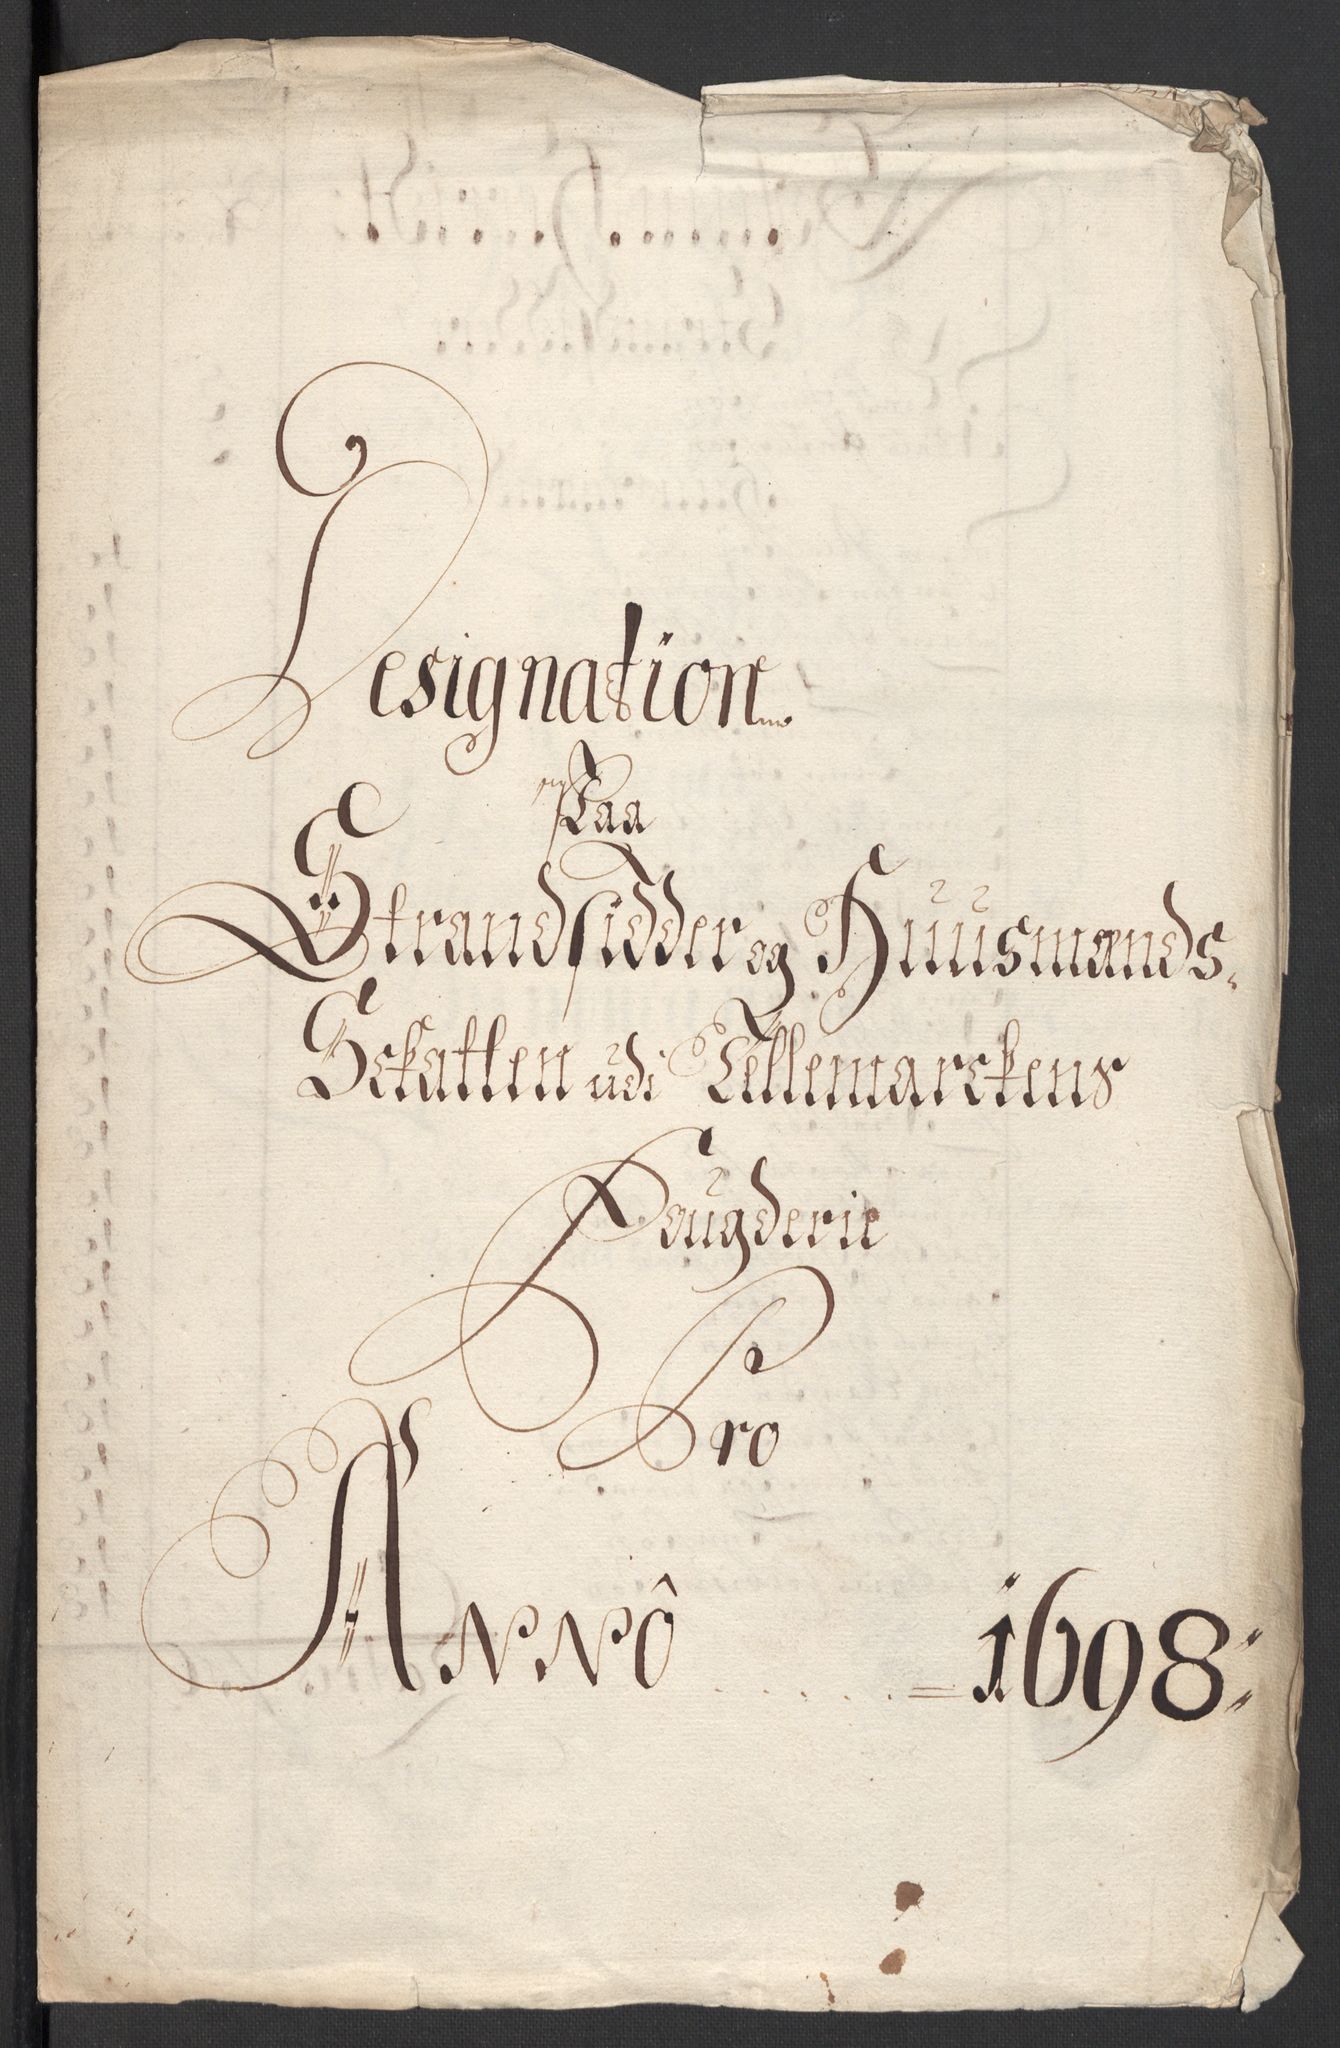 Designation
Paa
Strandsidder og Huusmænds-
Schatten udi Tellemarckens
Fougderie
Pro
Annô ..... = 1698: